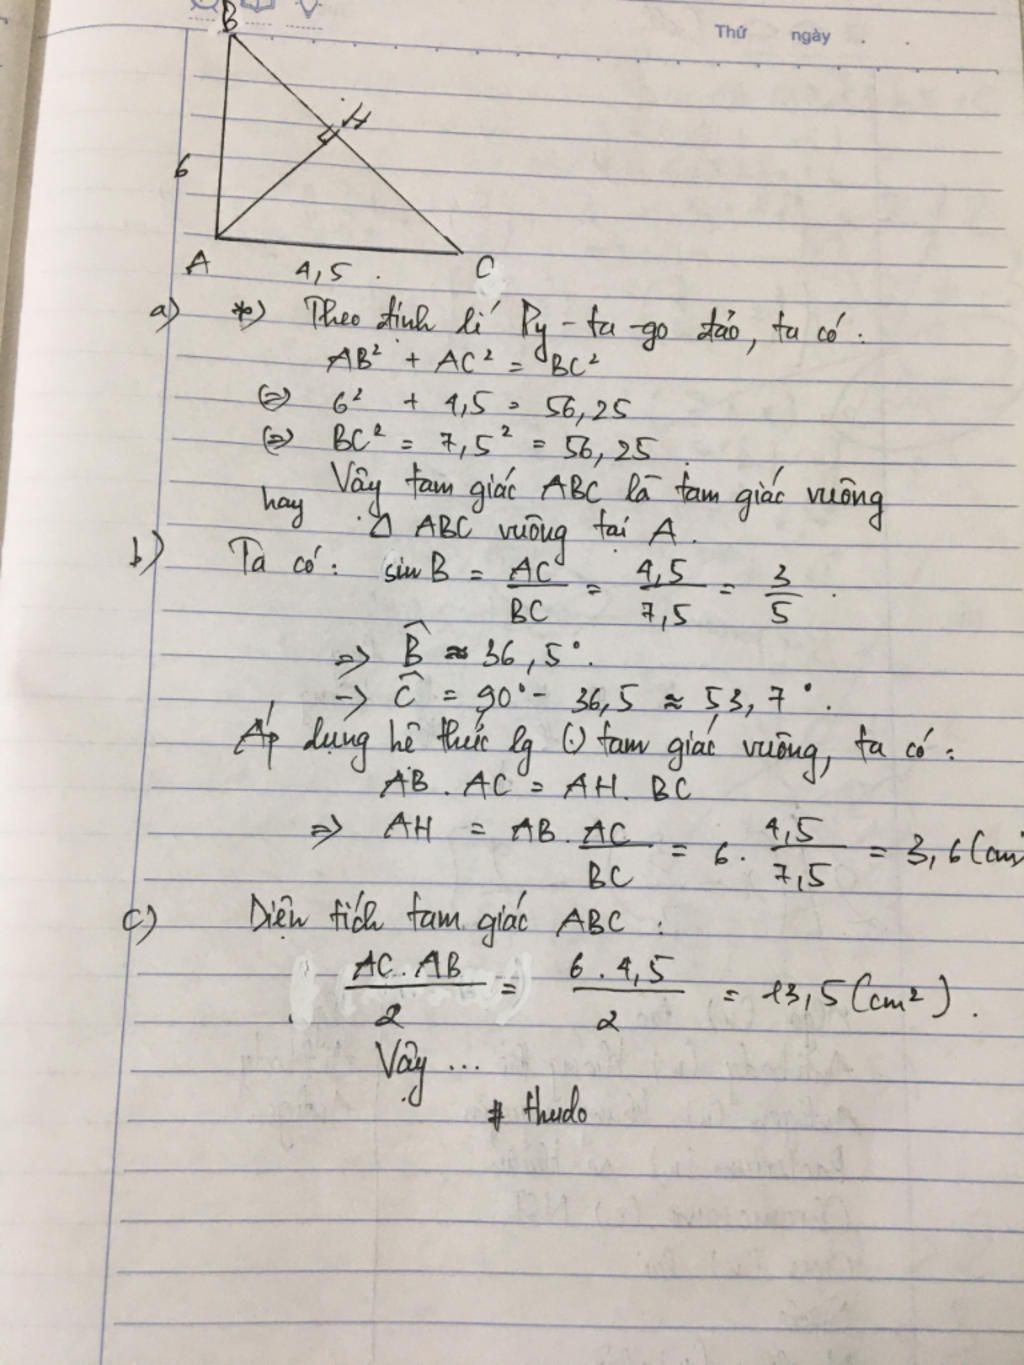 Thứ ngày
B
H
6
A
4,5
C
a) *) Theo định lí Py-ta-go đảo, ta có:
AB² + AC² = BC²
(=) 6² + 4,5 = 56,25
(=) BC² = 7,5² = 56,25
Vậy tam giác ABC là tam giác vuông
hay Δ ABC vuông tại A.
b) Ta có: sin B = AC/BC = 4,5/7,5 = 3/5.
=> B̂ ≈ 36,5°.
-> Ĉ = 90° - 36,5 ≈ 53,7°.
Áp dụng hệ thức lg (.) tam giác vuông, ta có:
AB . AC = AH . BC
=> AH = AB . AC/BC = 6 . 4,5/7,5 = 3,6 (cm
c) Diện tích tam giác ABC :
AC . AB/2 = 6 . 4,5/2 = 13,5 (cm²).
Vậy ...
# thudo